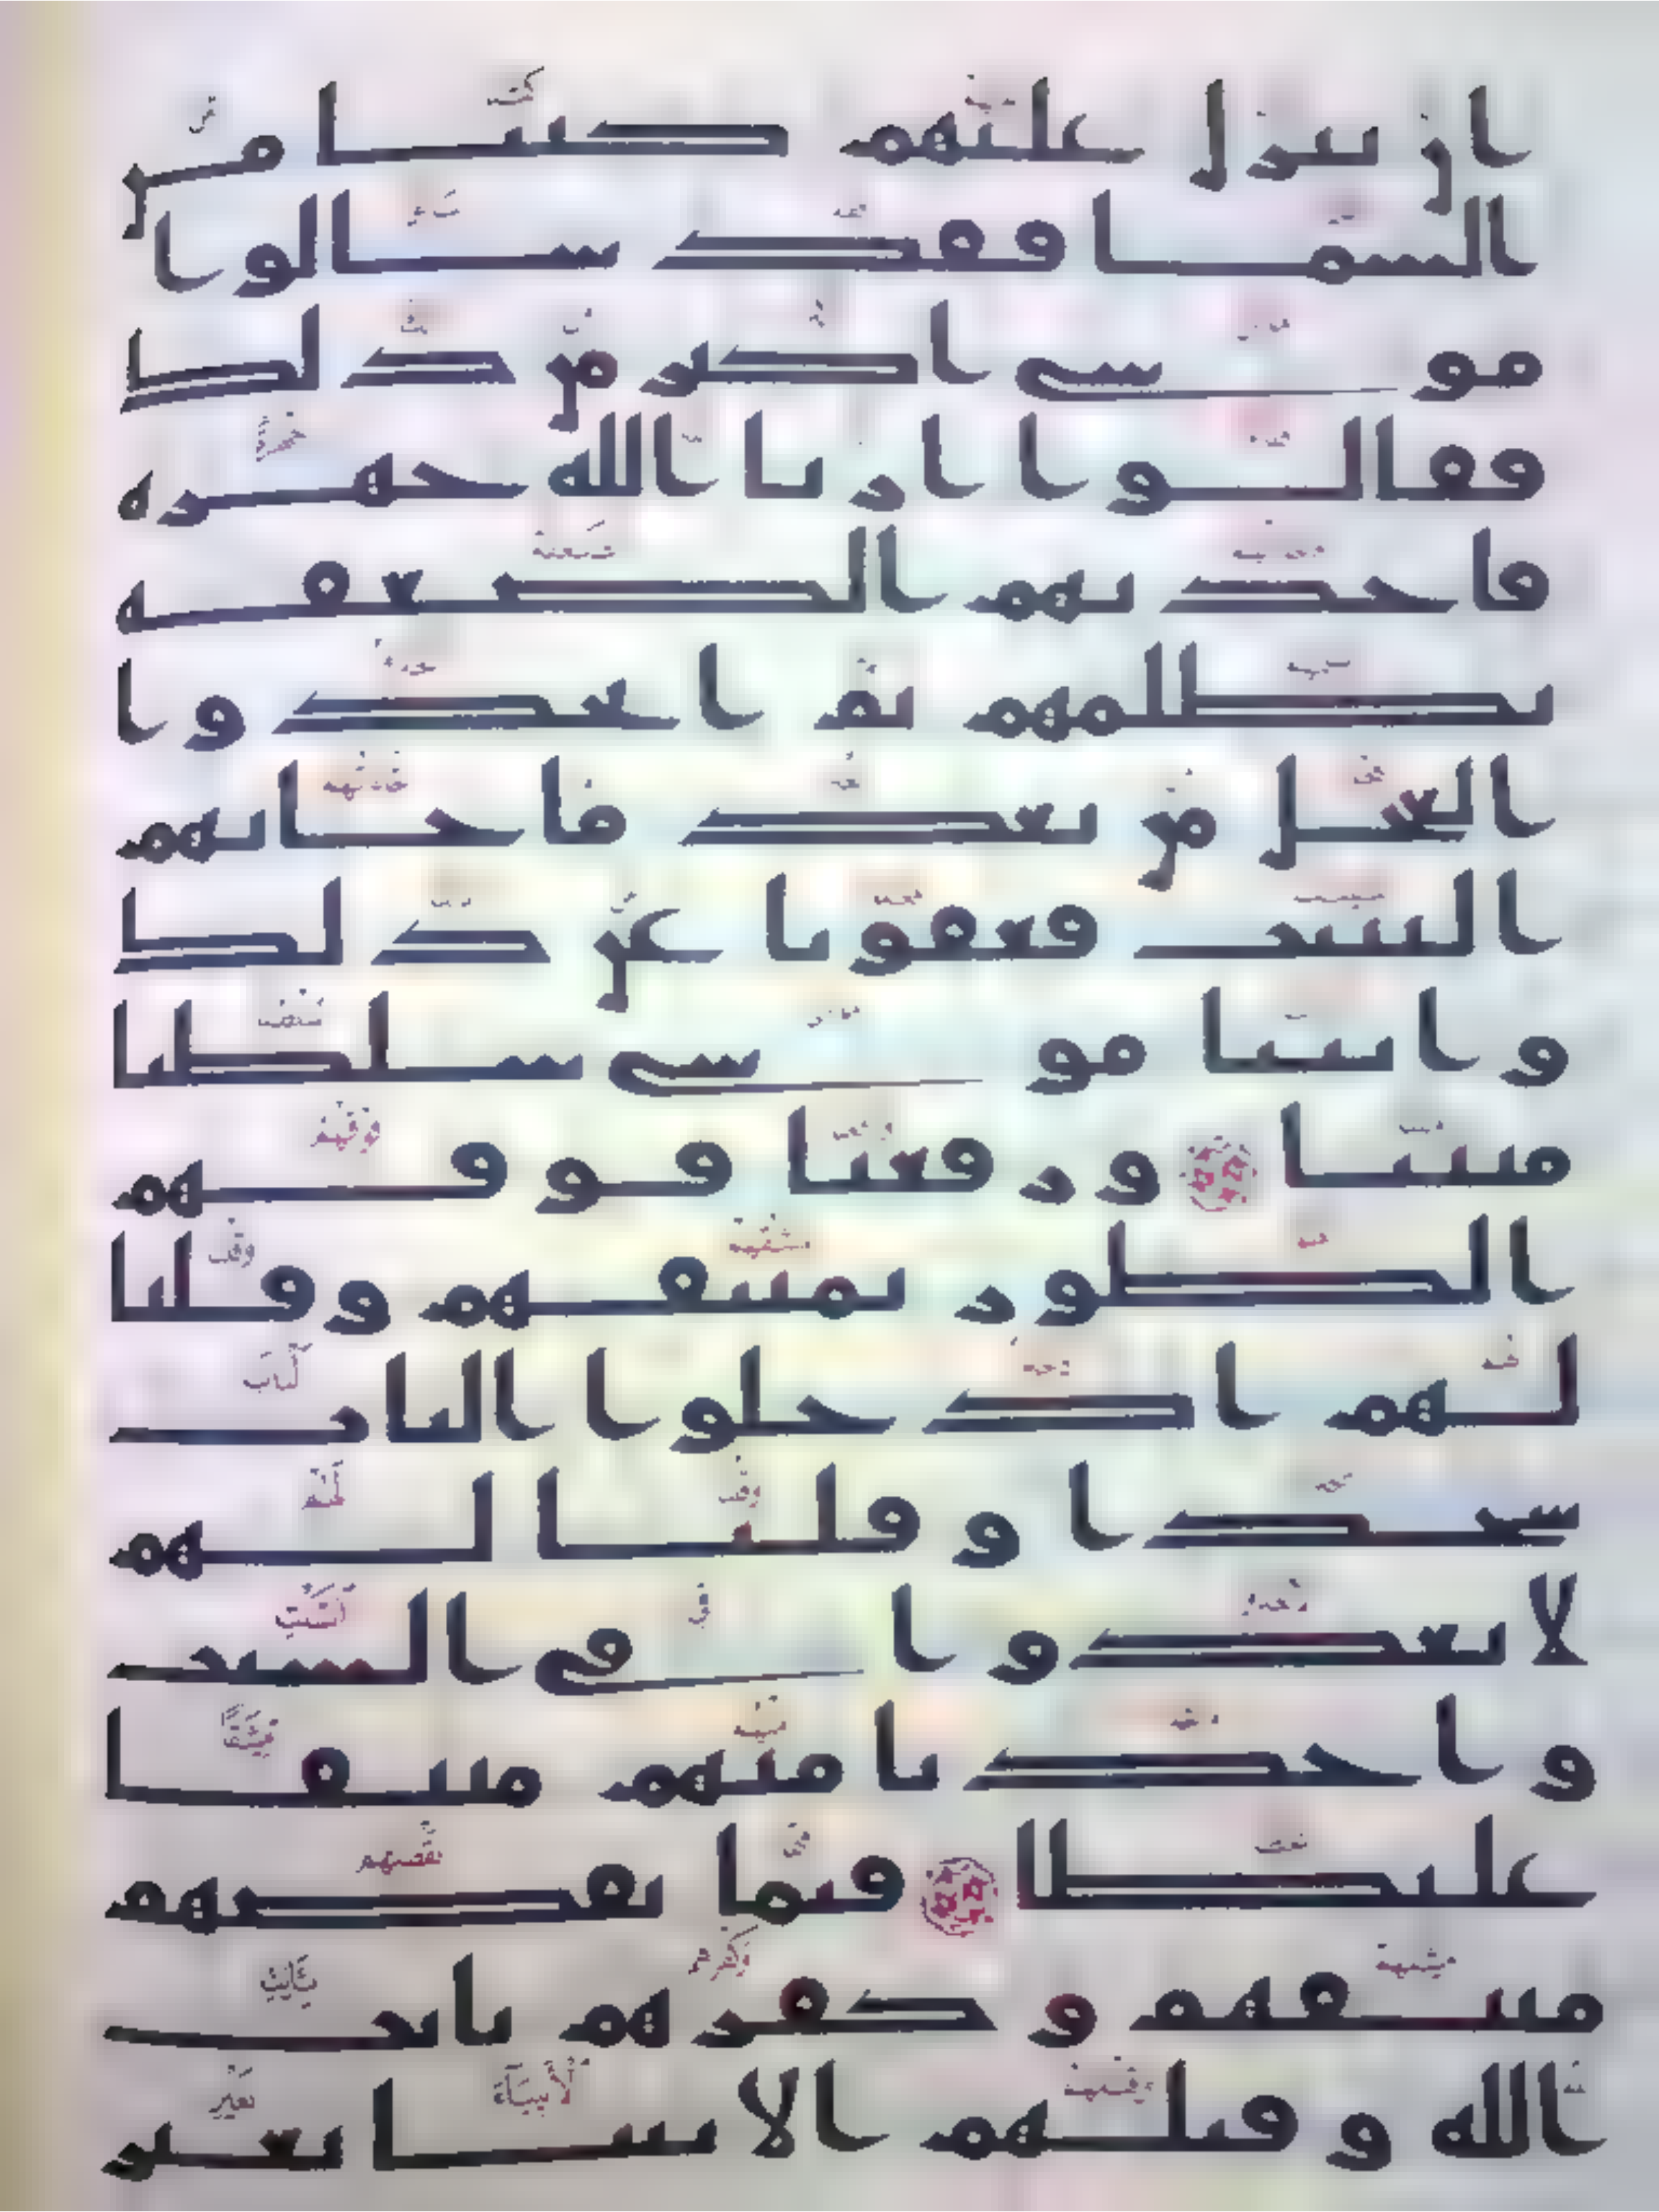 ان ينزل عليهم كتبا من
السما فقد سالوا
موسى اكبر من ذلك
فقالوا ارنا الله جهره
فاخذتهم الصعقه
بظلمهم ثم اتخذوا
العجل من بعد ما جاتهم
البينت فعفونا عن ذلك
واتينا موسى سلطنا
مبينا ورفعنا فوقهم
الطور بميثقهم وقلنا
لهم ادخلوا الباب
سجدا وقلنا لهم
لا تعدوا في السبت
واخذنا منهم ميثقا
غليظا فبما نقضهم
ميثقهم وكفرهم بايت
الله وقتلهم الانبيا بغير